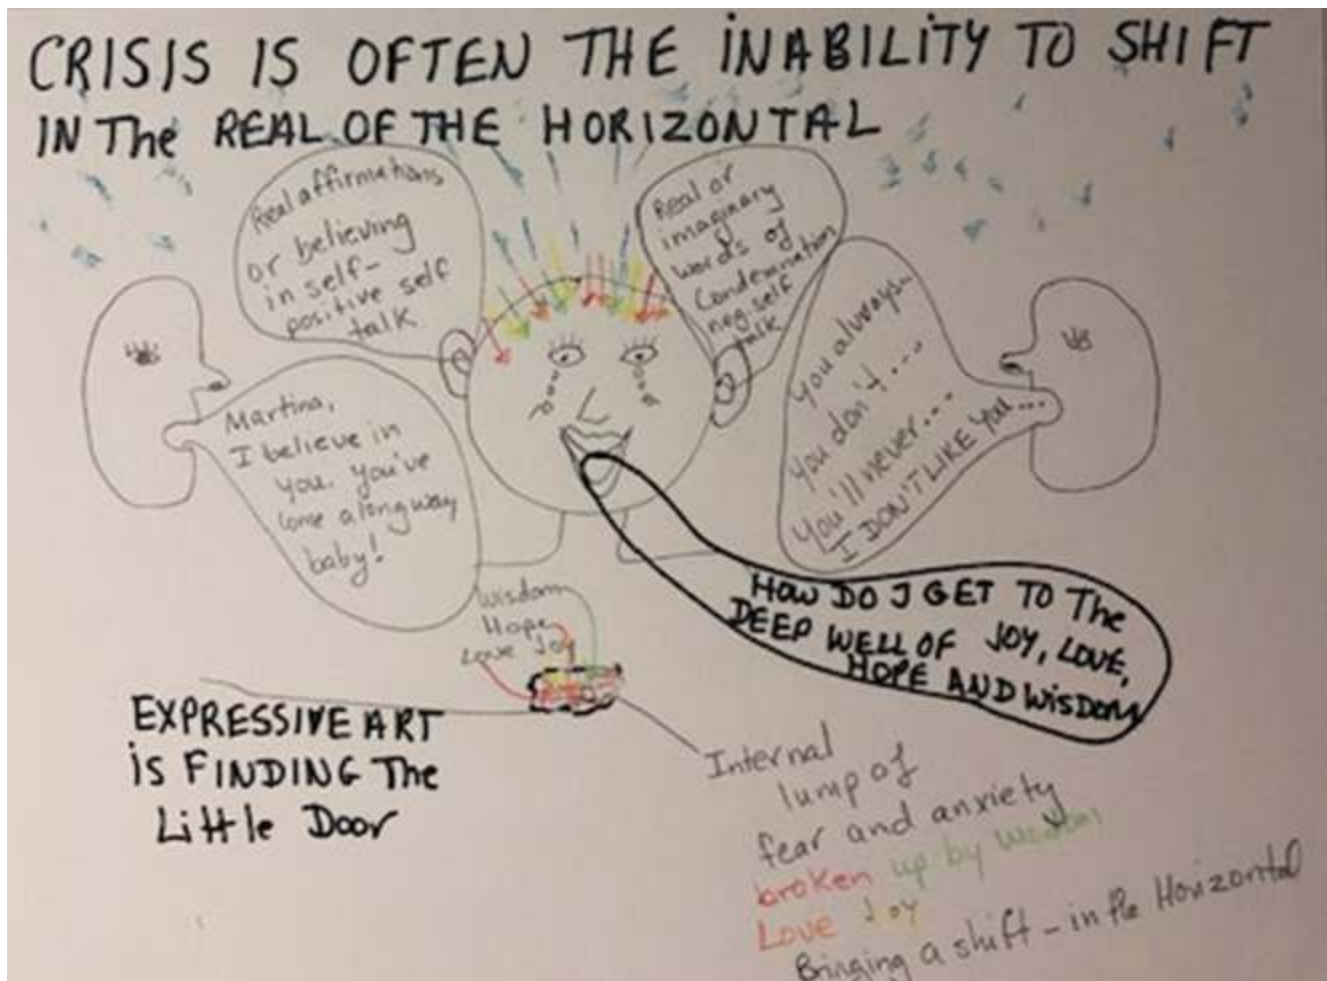 CRISIS IS OFTEN THE INABILITY TO SHIFT
IN The REAL OF THE HORIZONTAL
Real affirmations
or believing
in self-
positive self
talk
Real or
imaginary
words of
Condemnation
neg. self
talk
Martina,
I believe in
you. you've
come a long way
baby!
you always...
you don't...
you'll never...
I DON'T LIKE YOU...
HOW DO I GET TO The
DEEP WELL OF JOY, LOVE,
HOPE AND WISDOM
Wisdom
Hope
Love Joy
EXPRESSIVE ART
iS FINDING The
Little Door
Internal
lump of
fear and anxiety
broken up by wisdom
Love Joy
Bringing a shift - in the Horizontal